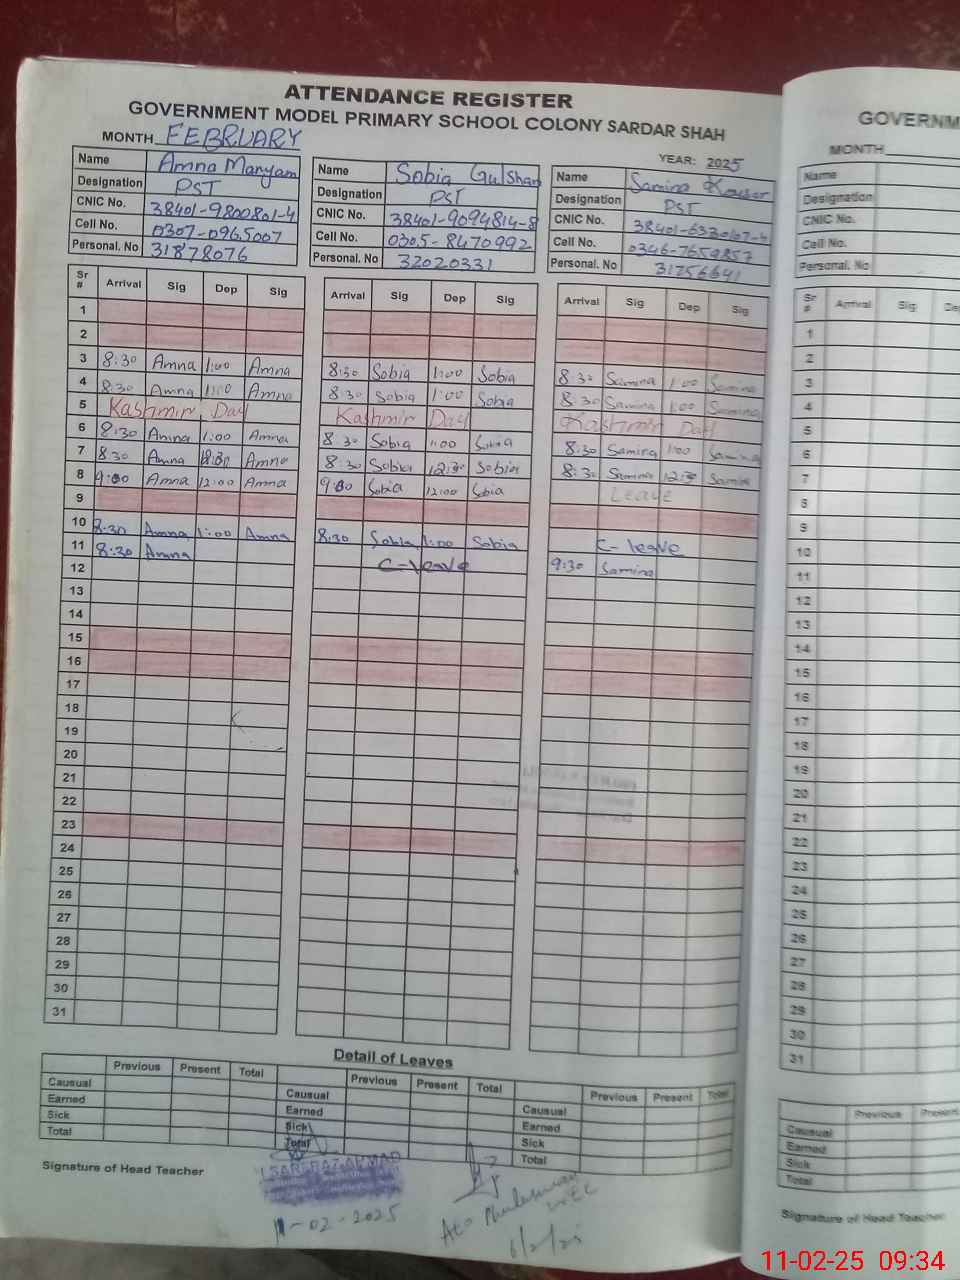 ATTENDANCE REGISTER
GOVERNMENT MODEL PRIMARY SCHOOL COLONY SARDAR SHAH
MONTH FEBRUARY
YEAR: 2025
Name Amna Maryam
Designation PST
CNIC No. 38401-9800801-4
Cell No. 0307-0965007
Personal. No 31878076
Name Sobia Gulshan
Designation PST
CNIC No. 38401-9094814-8
Cell No. 0305-8470992
Personal. No 32020331
Name Samina Kousar
Designation PST
CNIC No. 38401-6330167-4
Cell No. 0346-7659857
Personal. No 31756641
Sr # Arrival Sig Dep Sig Arrival Sig Dep Sig Arrival Sig Dep Sig
1
2
3 8:30 Amna 1:00 Amna 8:30 Sobia 1:00 Sobia 8:30 Samina 1:00 Samina
4 8:30 Amna 1:00 Amna 8:30 Sobia 1:00 Sobia 8:30 Samina 1:00 Samina
5 Kashmir Day Kashmir Day Kashmir Day
6 8:30 Amna 1:00 Amna 8:30 Sobia 1:00 Sobia 8:30 Samina 1:00 Samina
7 8:30 Amna 12:30 Amna 8:30 Sobia 12:30 Sobia 8:30 Samina 12:30 Samina
8 9:00 Amna 12:00 Amna 9:00 Sobia 12:00 Sobia Leave
9
10 8:30 Amna 1:00 Amna 8:30 Sobia 1:00 Sobia C-leave
11 8:30 Amna C-leave 9:30 Samina
12
13
14
15
16
17
18
19
20
21
22
23
24
25
26
27
28
29
30
31
Detail of Leaves
Previous Present Total Previous Present Total Previous Present Total
Causual Causual Causual
Earned Earned Earned
Sick Sick Sick
Total Total Total
Signature of Head Teacher
SARFRAZ AHMAD
11-02-2025
6/2/25
GOVERNM
MONTH
Name
Designation
CNIC No.
Cell No.
Personal. No
Sr # Arrival Sig De
1
2
3
4
5
6
7
8
9
10
11
12
13
14
15
16
17
18
19
20
21
22
23
24
25
26
27
28
29
30
31
Previous Present
Causual
Earned
Sick
Total
Signature of Head Teacher
11-02-25 09:34